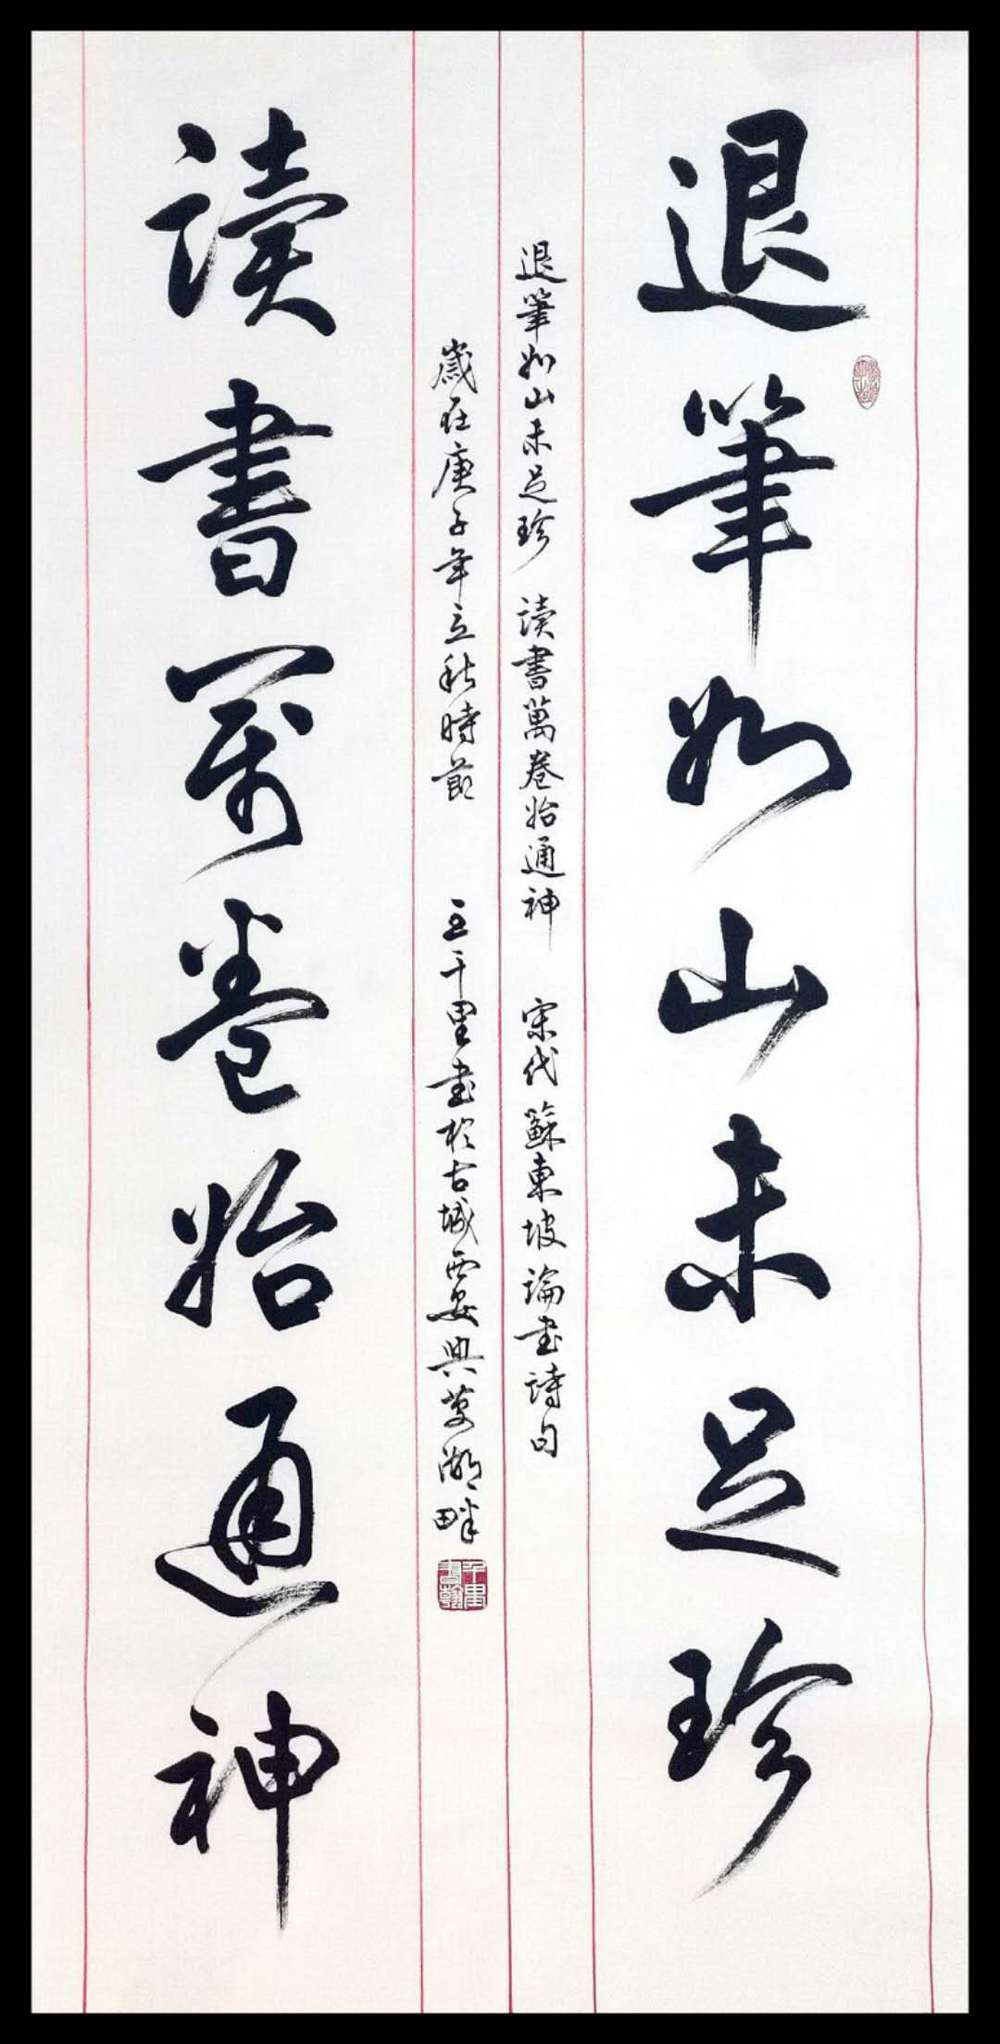 退筆如山未足珍
退筆如山未足珍 讀書萬卷始通神 宋代蘇東坡論書詩句
歲在庚子年立秋時節 王千里書於古城西安興慶湖畔
讀書萬卷始通神